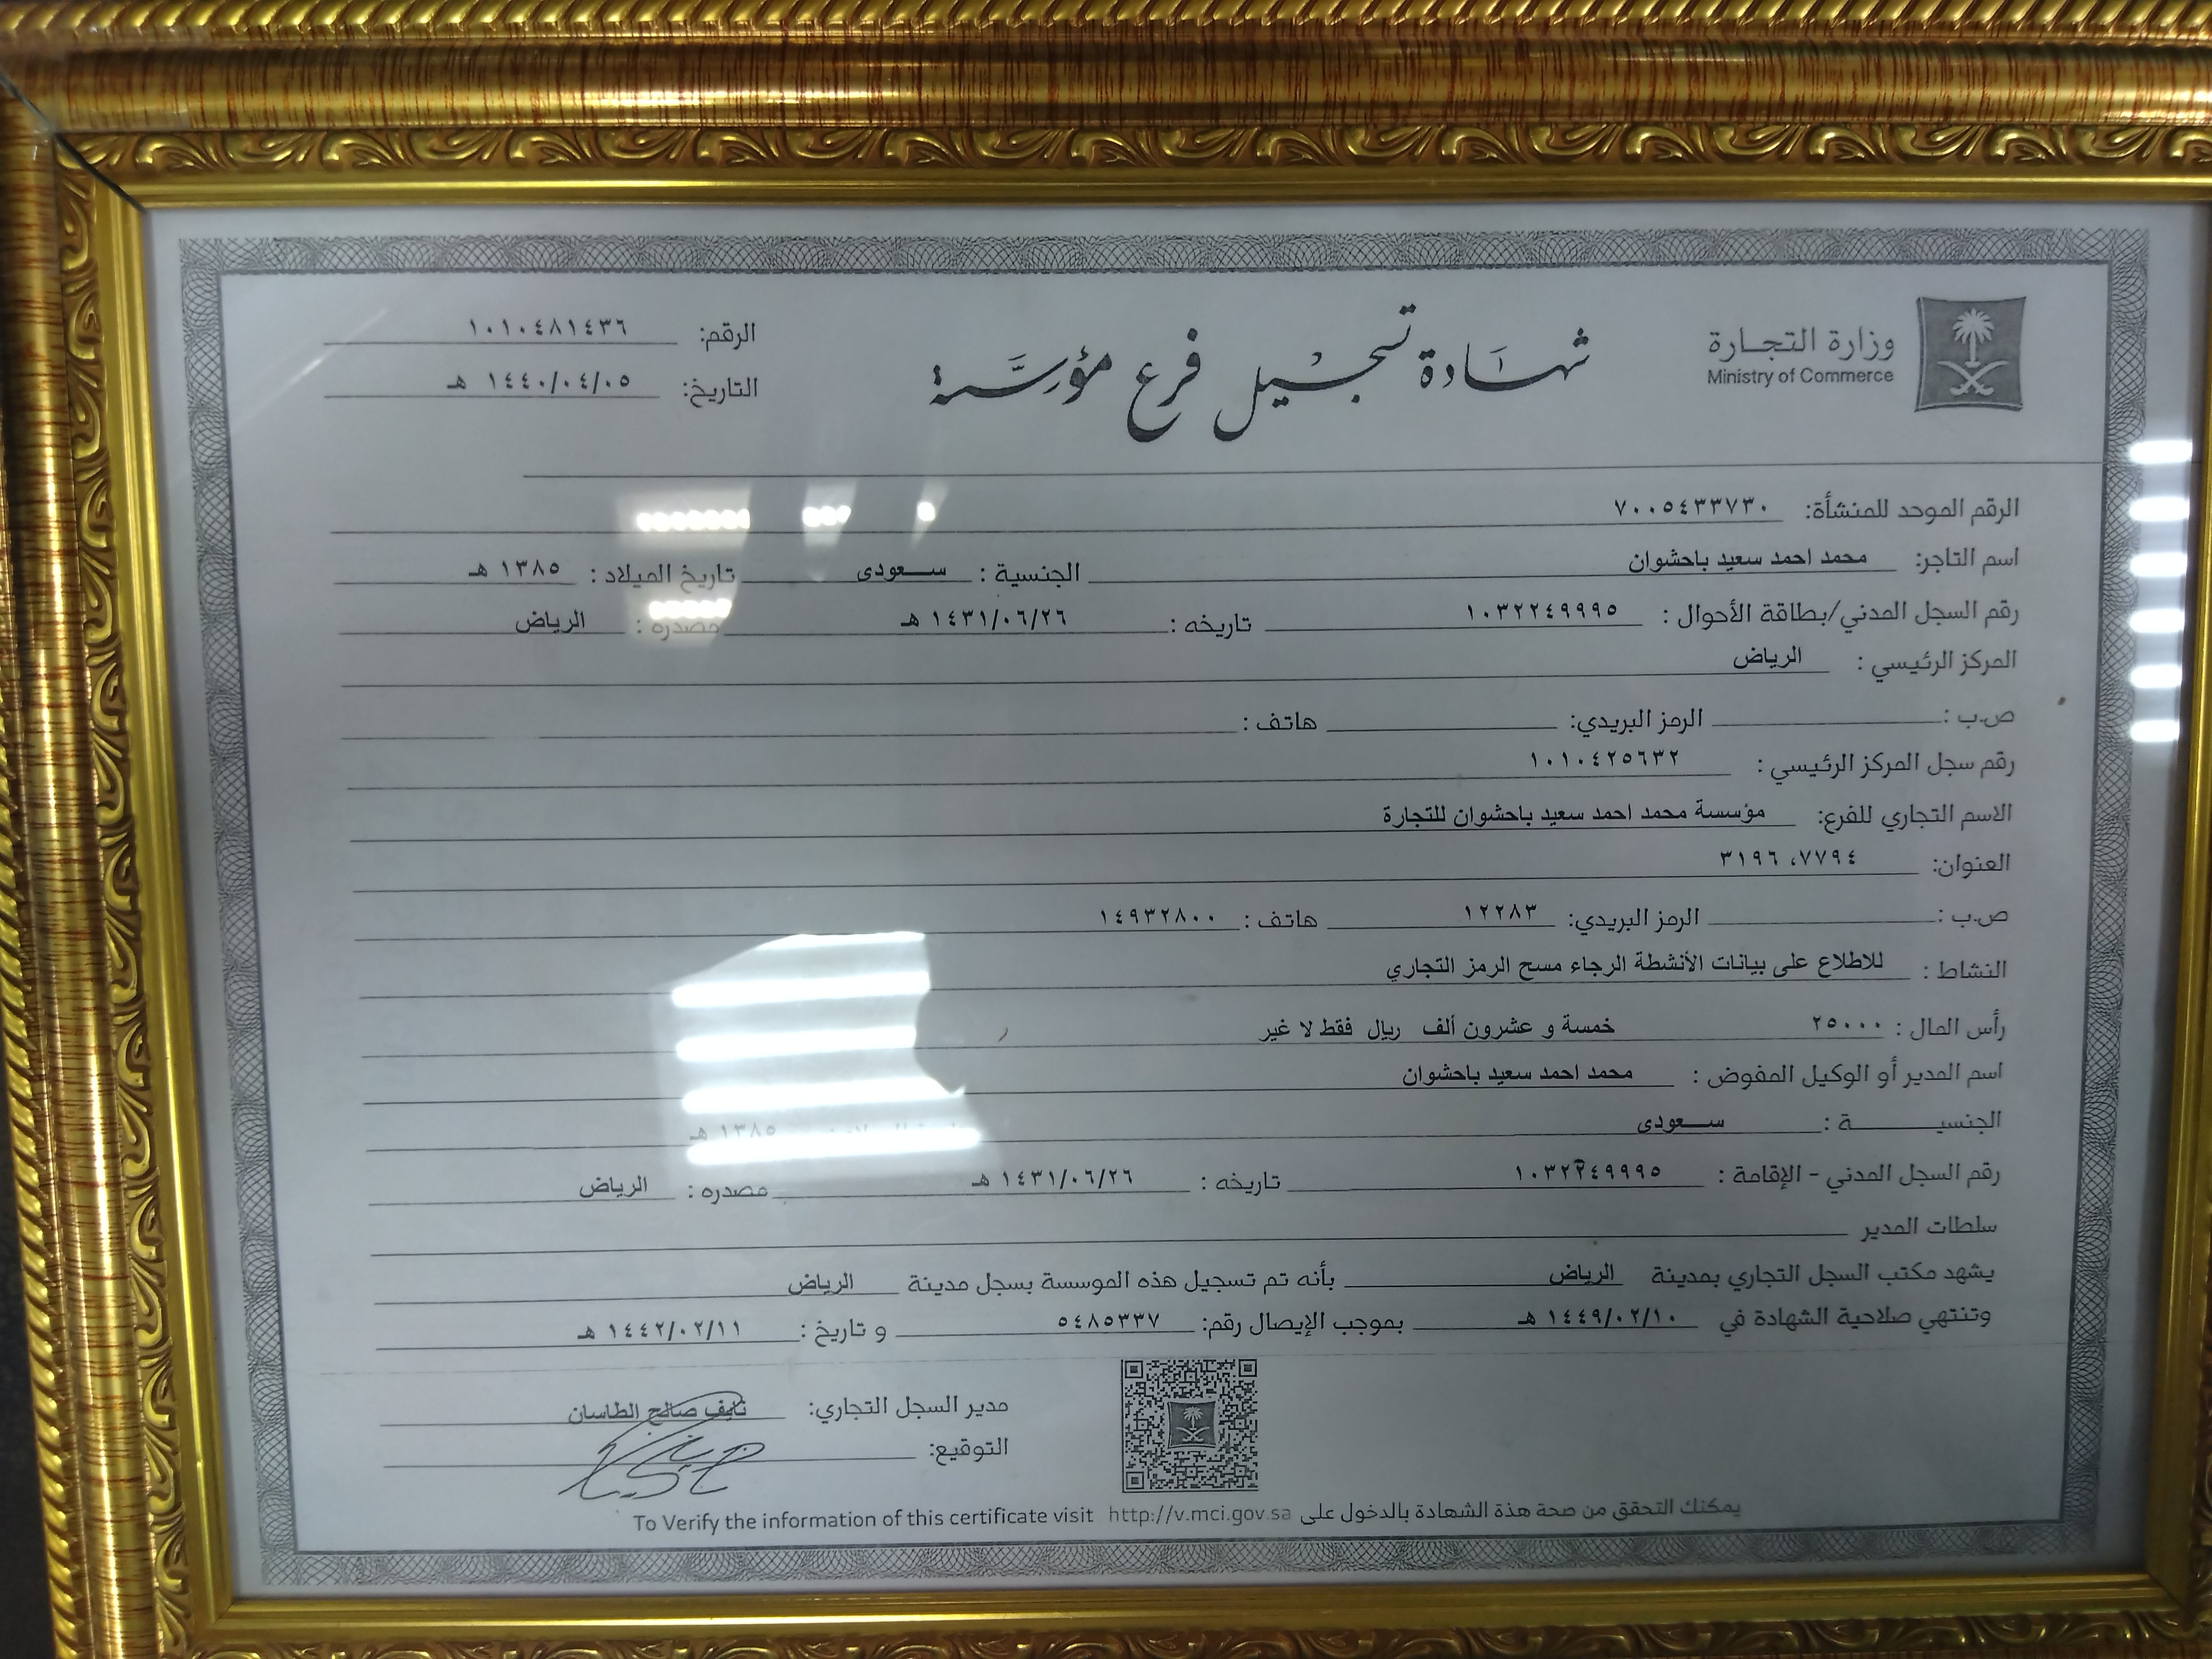 وزارة التجارة
Ministry of Commerce
شهادة تسجيل فرع مؤسسة
الرقم: ١٠١٠٤٨١٤٣٦
التاريخ: ١٤٤٠/٠٤/٠٥ هـ
الرقم الموحد للمنشأة: ٧٠٠٥٤٣٣٧٣٠
اسم التاجر: محمد احمد سعيد باحشوان الجنسية : سعودى تاريخ الميلاد : ١٣٨٥ هـ
رقم السجل المدني/بطاقة الأحوال : ١٠٣٢٢٤٩٩٩٥ تاريخه : ١٤٣١/٠٦/٢٦ هـ مصدره : الرياض
المركز الرئيسي : الرياض
ص.ب : الرمز البريدي: هاتف :
رقم سجل المركز الرئيسي : ١٠١٠٤٢٥٦٣٢
الاسم التجاري للفرع: مؤسسة محمد احمد سعيد باحشوان للتجارة
العنوان: ٧٧٩٤، ٣١٩٦
ص.ب : الرمز البريدي: ١٢٢٨٣ هاتف : ١٤٩٣٢٨٠٠
النشاط : للاطلاع على بيانات الأنشطة الرجاء مسح الرمز التجاري
رأس المال : ٢٥٠٠٠ خمسة و عشرون ألف ريال فقط لا غير
اسم المدير أو الوكيل المفوض : محمد احمد سعيد باحشوان
الجنسيـــــــة : سعودى ١٣٨٥ هـ
رقم السجل المدني - الإقامة : ١٠٣٢٢٤٩٩٩٥ تاريخه : ١٤٣١/٠٦/٢٦ هـ مصدره : الرياض
سلطات المدير
يشهد مكتب السجل التجاري بمدينة الرياض بأنه تم تسجيل هذه الموسسة بسجل مدينة الرياض
وتنتهي صلاحية الشهادة في ١٤٤٩/٠٢/١٠ هـ بموجب الإيصال رقم: ٥٤٨٥٣٣٧ و تاريخ : ١٤٤٢/٠٢/١١ هـ
مدير السجل التجاري: نايف صالح الطاسان
التوقيع:
يمكنك التحقق من صحة هذة الشهادة بالدخول على http://v.mci.gov.sa To Verify the information of this certificate visit